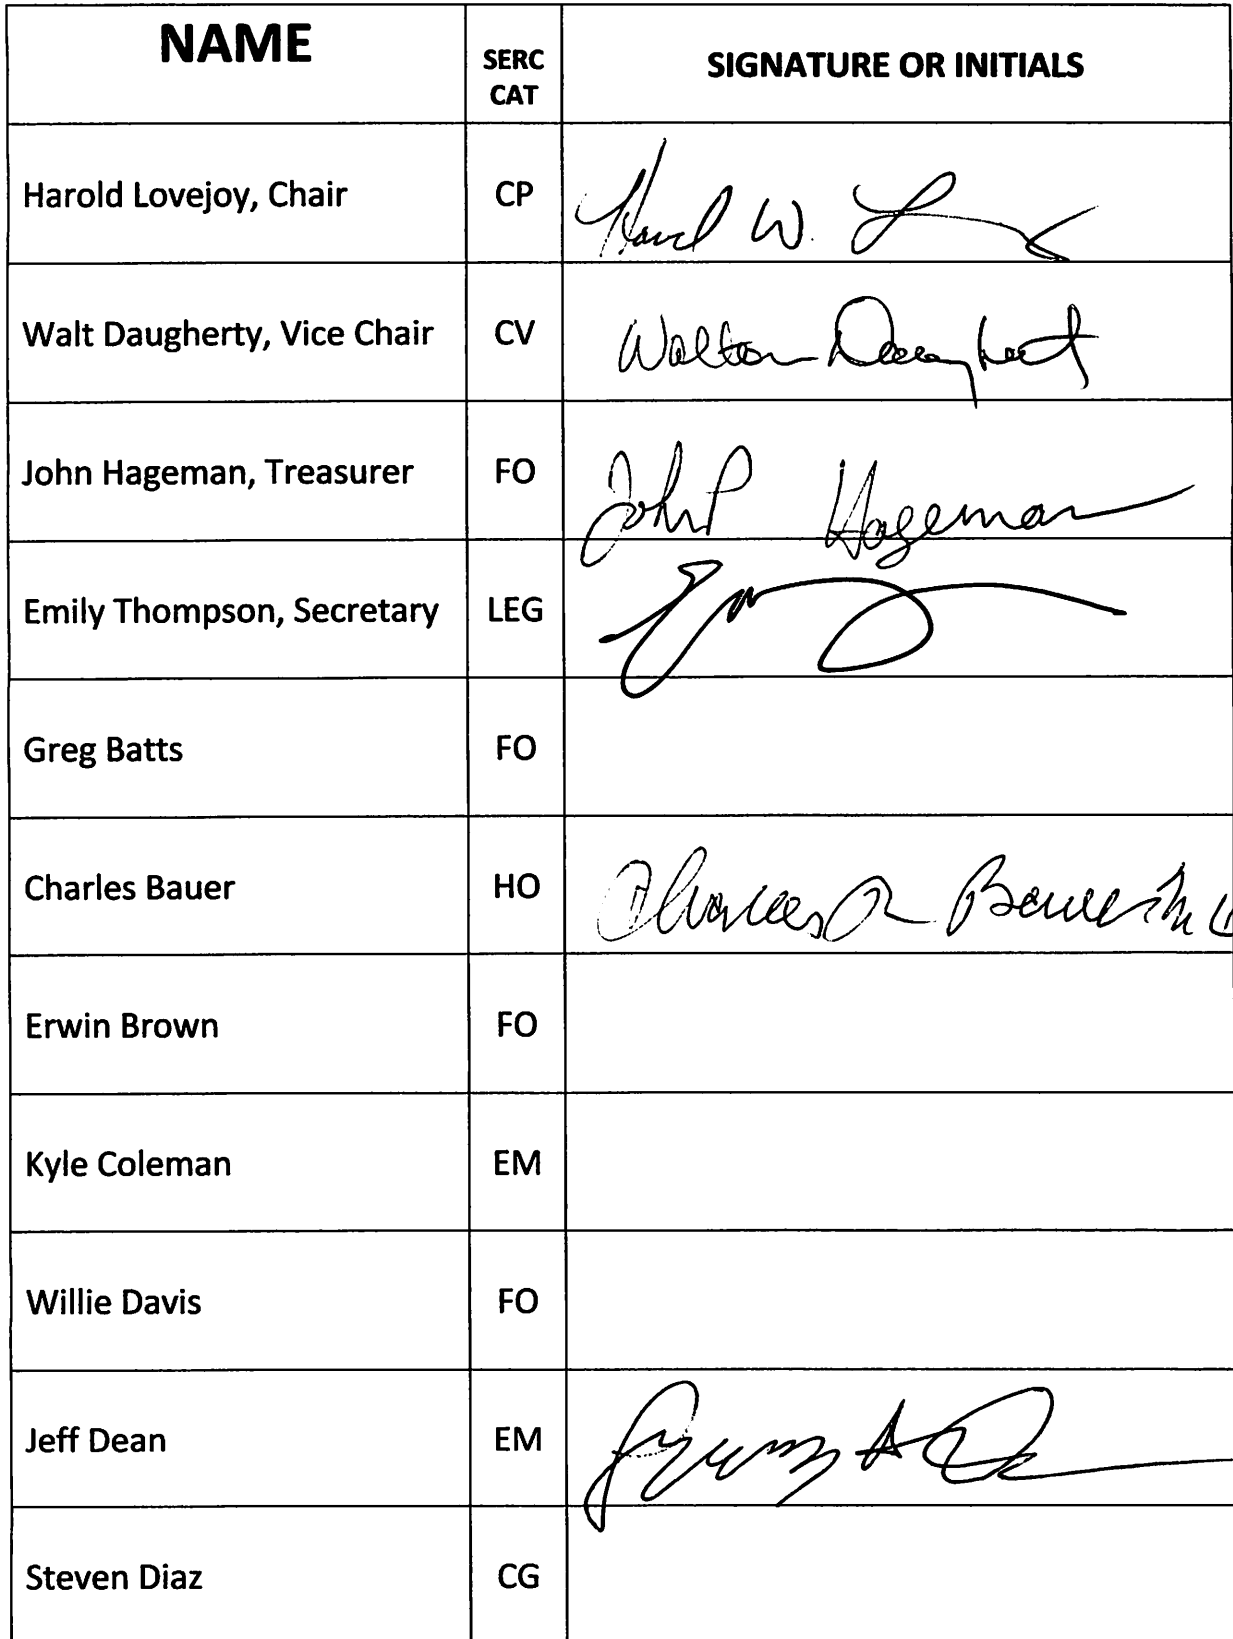 NAME
SERC
CAT
SIGNATURE OR INITIALS
Harold Lovejoy, Chair CP Harold W.
Walt Daugherty, Vice Chair CV Walton Daughert
John Hageman, Treasurer FO John P Hageman
Emily Thompson, Secretary LEG
Greg Batts FO
Charles Bauer HO Charles Bauer
Erwin Brown FO
Kyle Coleman EM
Willie Davis FO
Jeff Dean EM
Steven Diaz CG